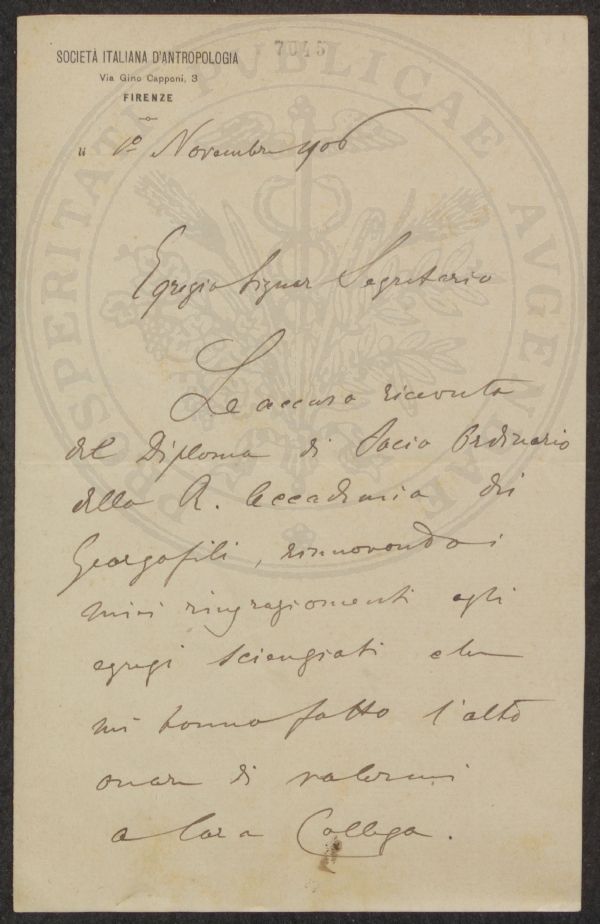 7045
SOCIETÀ ITALIANA D'ANTROPOLOGIA
Via Gino Capponi, 3
FIRENZE
li 1º Novembre 1906
Egregio Signor Segretario
Le accuso ricevuta
del Diploma di Socio Ordinario
della R. Accademia dei
Georgofili, rinnovando i
miei ringraziamenti agli
egregi scienziati che
mi hanno fatto l'alto
onore di volermi
a loro Collega.
PROSPERITATI PVBLICAE AVGENDAE